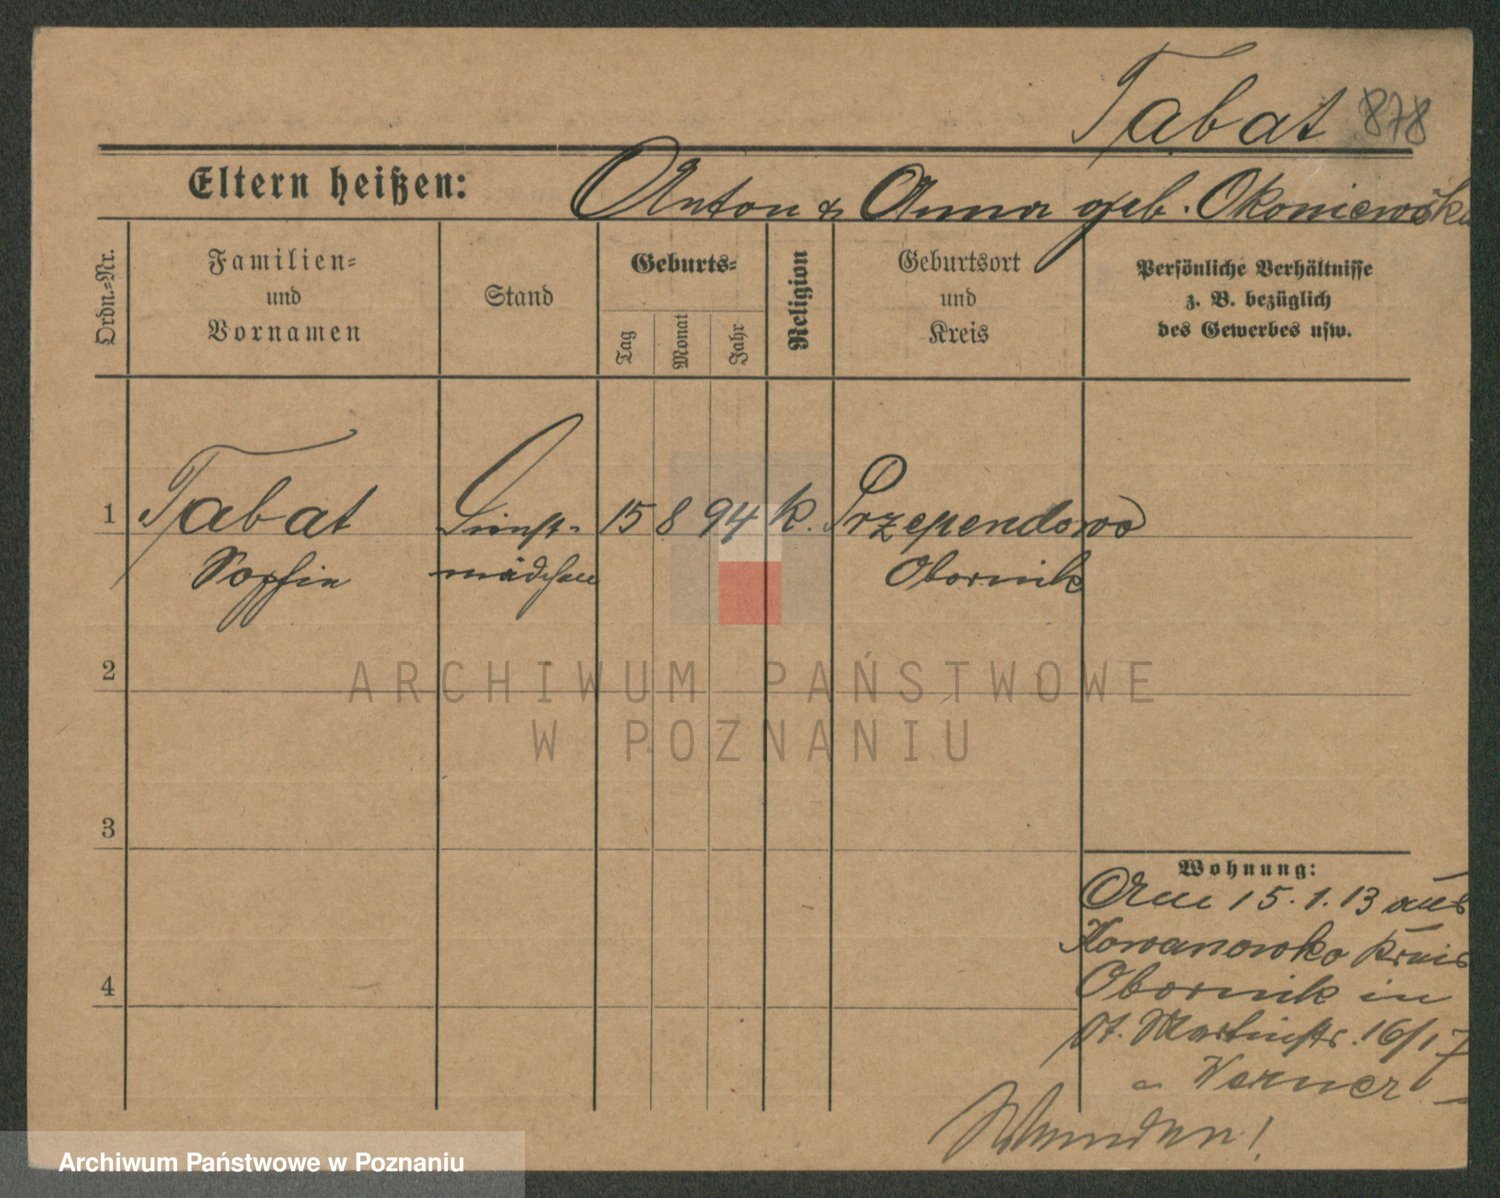 Tabat 878
Eltern heißen: Anton & Anna geb. Okoniewska
Ordn.-Nr.
Familien-
und
Vornamen
Stand
Geburts-
Tag
Monat
Jahr
Religion
Geburtsort
und
Kreis
Persönliche Verhältnisse
z. B. bezüglich
des Gewerbes usw.
1 Tabat Dienst- 15 8 94 k. Przependowo
Sophie mädchen Obornik
2
ARCHIWUM PAŃSTWOWE
W POZNANIU
3
Wohnung:
Am 15.1.13 aus
Kowanowko Kreis
4
Obornik in
St. Martinstr. 16/17
Werner
Archiwum Państwowe w Poznaniu